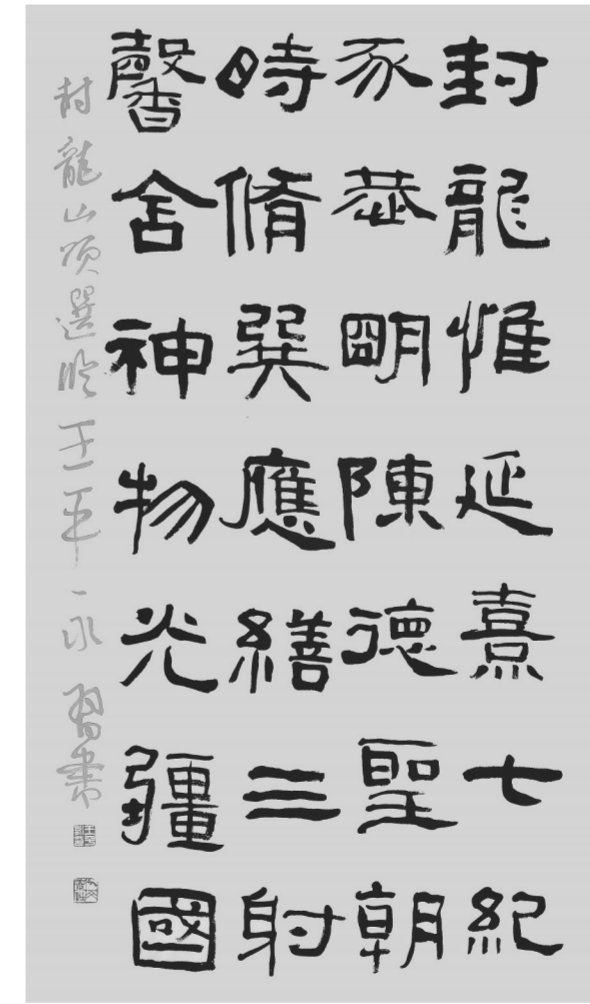 封龍惟延熹七紀
豕恭明陳德聖朝
時脩巽應繕三射
馨舍神物光疆國
封龍山頌選臨王平一永習書